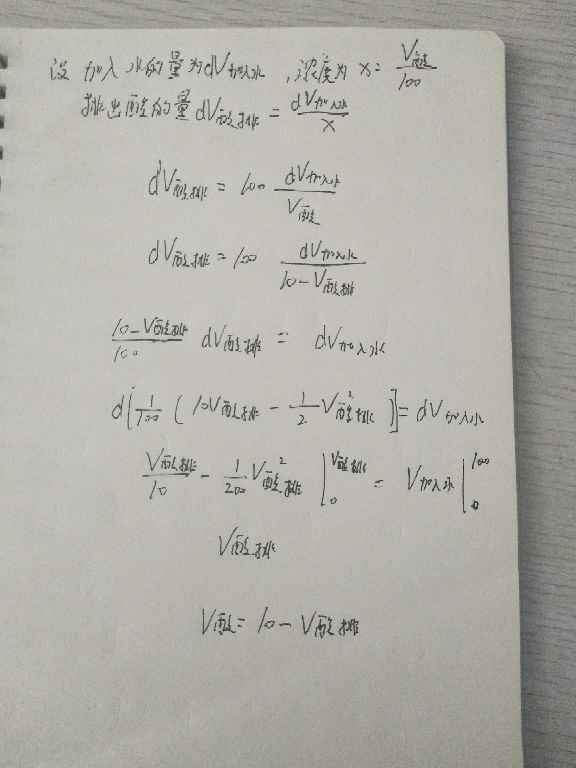 设加入水的量为dV加入水,浓度为 x = V酸/100
排出酸的量 dV酸排 = dV加入水/x
dV酸排 = 100 dV加入水/V酸
dV酸排 = 100 dV加入水/(10-V酸排)
(10-V酸排)/100 dV酸排 = dV加入水
d[1/100 (10V酸排 - 1/2 V酸排²)] = dV加入水
V酸排/10 - 1/200 V酸排² |₀^V酸排 = V加入水 |₀^100
V酸排
V酸 = 10 - V酸排